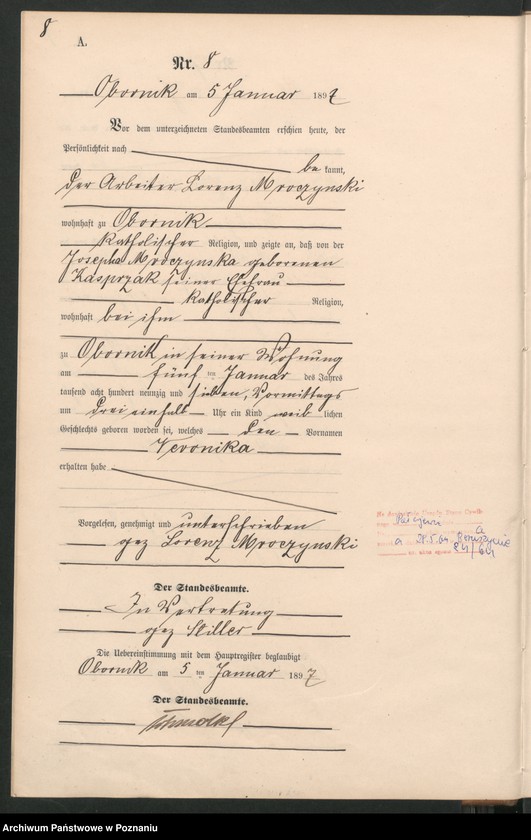 8
A.
Nr. 8
Obornik am 5 Januar 1897
Vor dem unterzeichneten Standesbeamten erschien heute, der
Persönlichkeit nach
be kannt,
der Arbeiter Lorenz Mroczynski
wohnhaft zu Obornik
katholischer Religion, und zeigte an, daß von der
Josepha Mroczynska geborenen
Kasprzak seiner Ehefrau
katholischer Religion,
wohnhaft bei ihm
zu Obornik in seiner Wohnung
am fünften Januar des Jahres
tausend acht hundert neunzig und sieben, Vormittags
um drei einhalb Uhr ein Kind weib lichen
Geschlechts geboren worden sei, welches den Vornamen
Veronika
erhalten habe
Vorgelesen, genehmigt und unterschrieben
gez Lorenz Mroczynski
Der Standesbeamte.
In Vertretung
gez Stiller
Die Uebereinstimmung mit dem Hauptregister beglaubigt
Obornik am 5 ten Januar 1897
Der Standesbeamte.